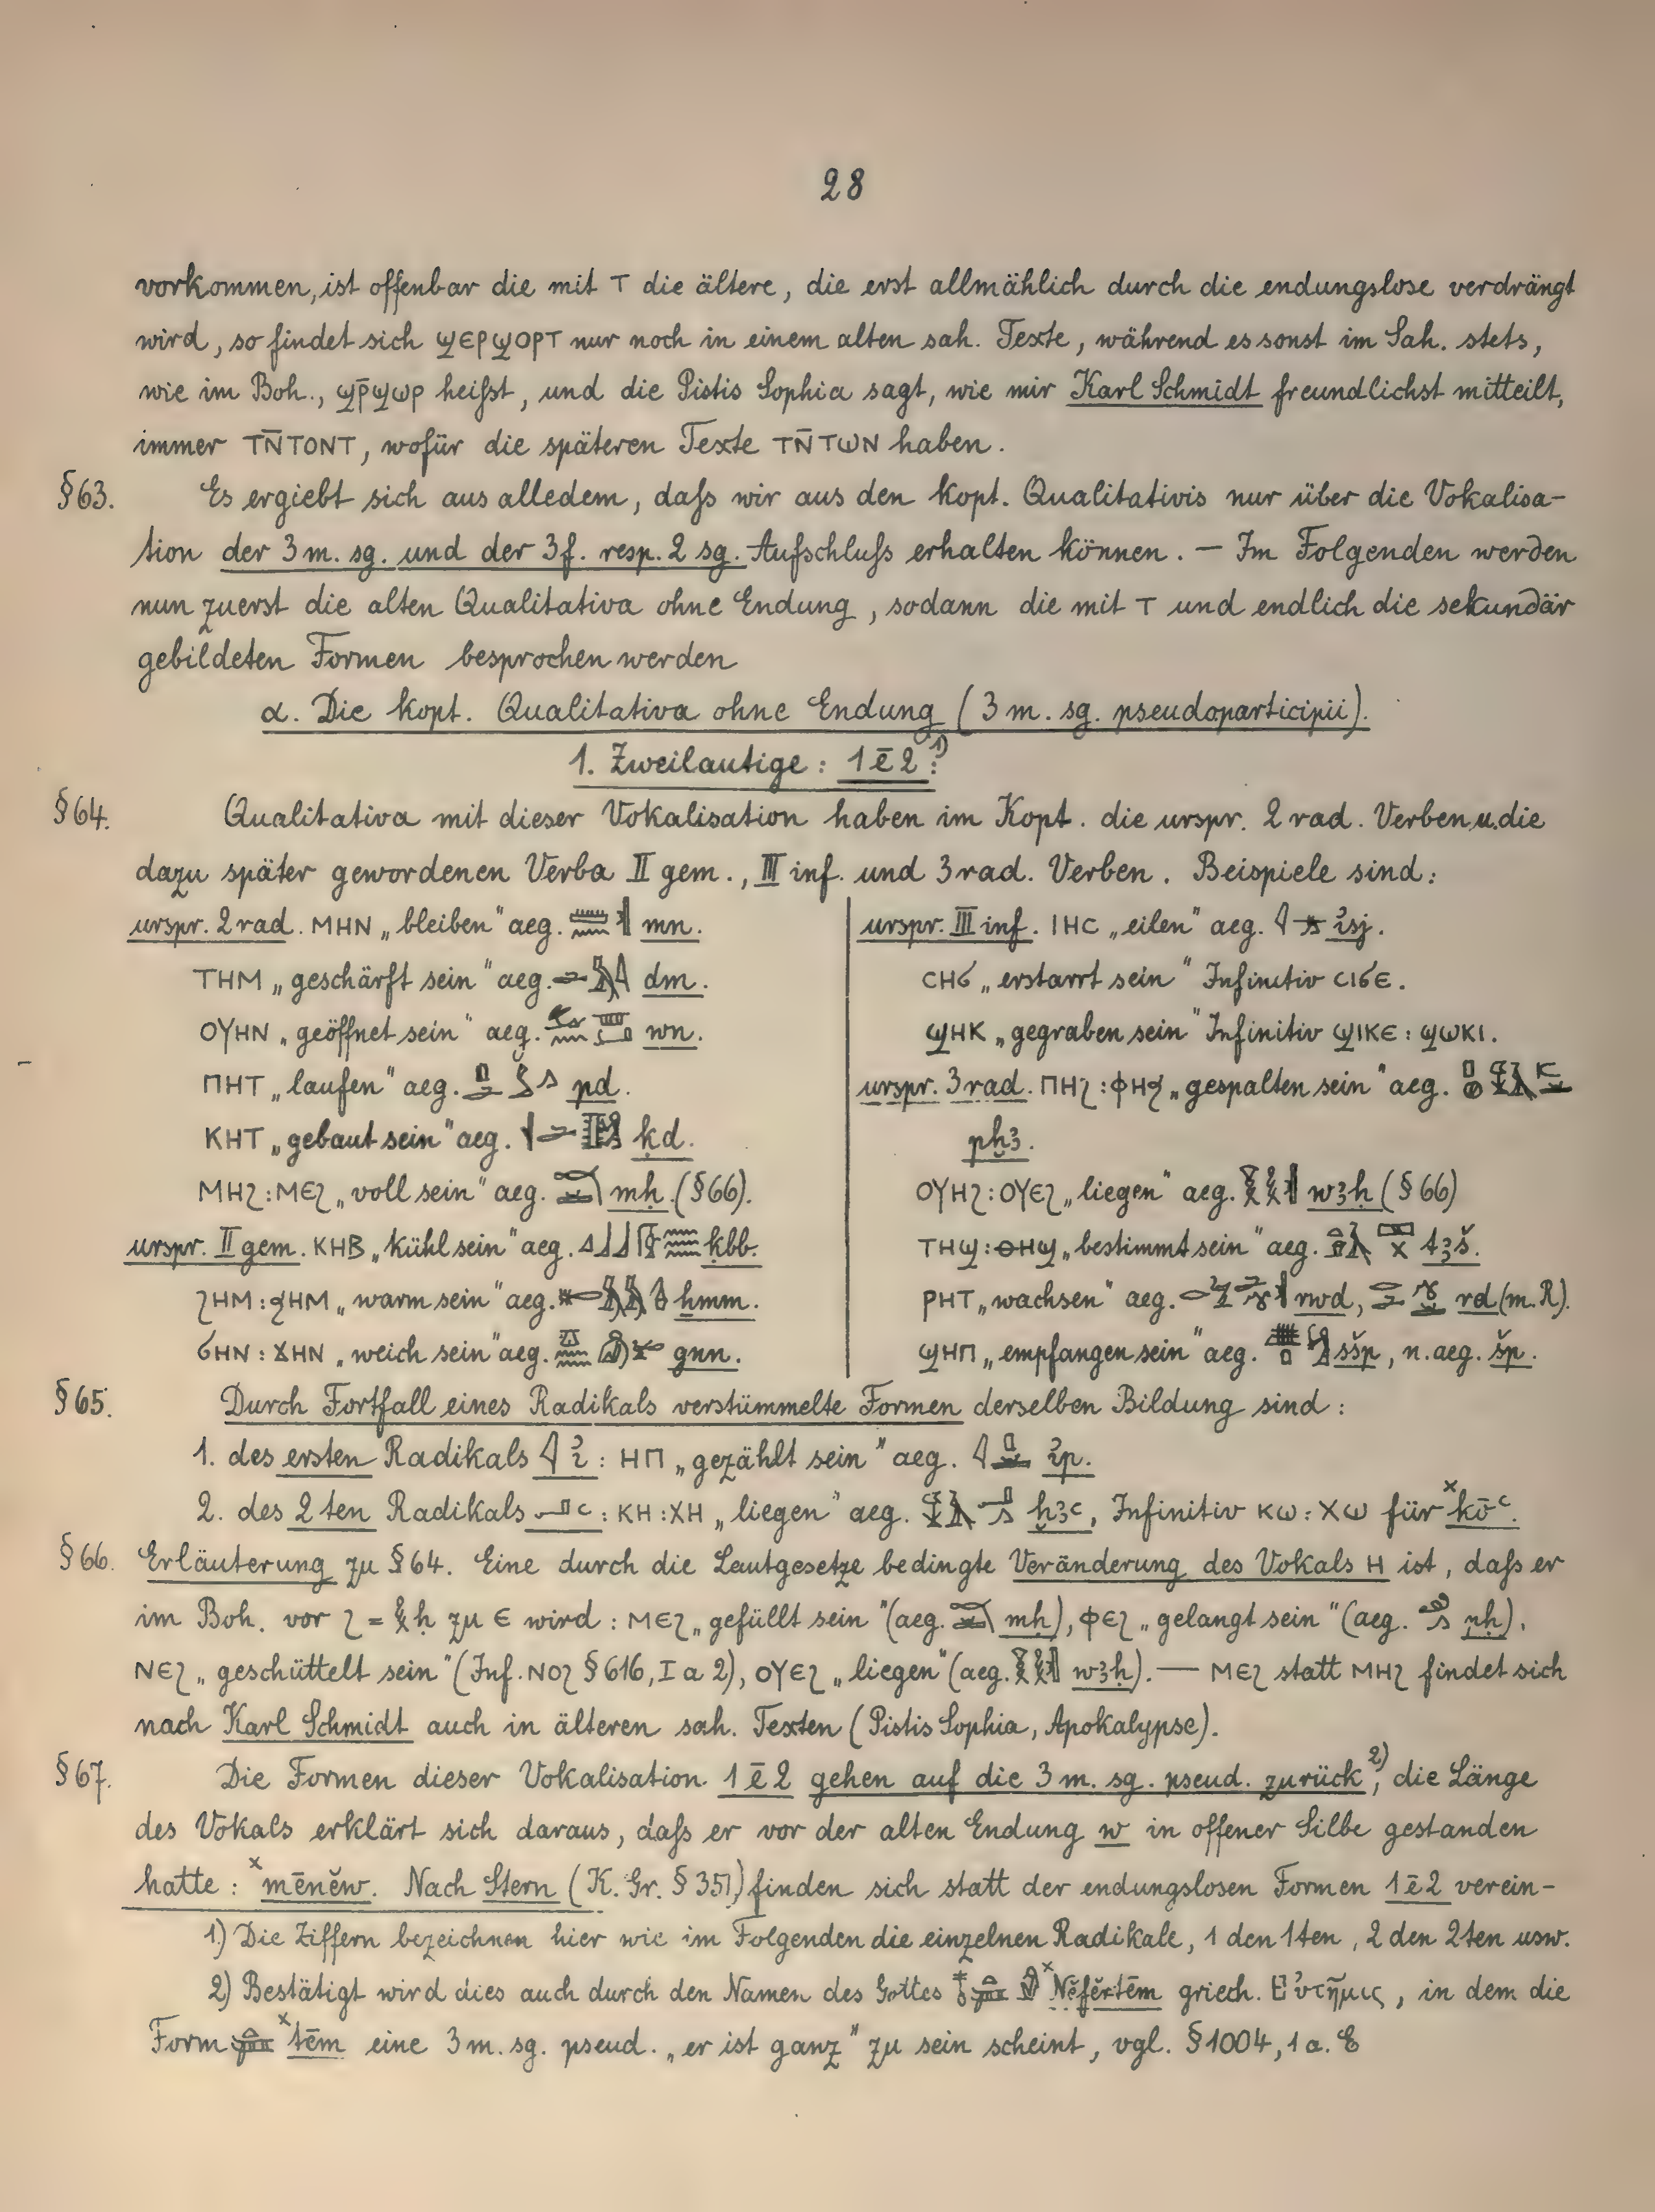 28
vorkommen, ist offenbar die mit ⲧ die ältere, die erst allmählich durch die endungslose verdrängt
wird, so findet sich ϣⲉⲣϣⲟⲣⲧ nur noch in einem alten sah. Texte, während es sonst im Sah. stets,
wie im Boh., ϣⲣ̄ϣⲱⲣ heißt, und die Pistis Sophia sagt, wie mir Karl Schmidt freundlichst mitteilt,
immer ⲧⲛ̄ⲧⲟⲛⲧ, wofür die späteren Texte ⲧⲛ̄ⲧⲱⲛ haben.
§63. Es ergiebt sich aus alledem, daß wir aus den kopt. Qualitativis nur über die Vokalisa-
tion der 3 m. sg. und der 3 f. resp. 2 sg. Aufschluß erhalten können. — Im Folgenden werden
nun zuerst die alten Qualitativa ohne Endung, sodann die mit ⲧ und endlich die sekundär
gebildeten Formen besprochen werden
α. Die kopt. Qualitativa ohne Endung (3 m. sg. pseudoparticipii).
1. Zweilautige: 1 ē 2 1):
§64. Qualitativa mit dieser Vokalisation haben im Kopt. die urspr. 2 rad. Verben u. die
dazu später gewordenen Verba II gem., III inf. und 3 rad. Verben. Beispiele sind:
urspr. 2 rad. ⲙⲏⲛ „bleiben" aeg. mn.
ⲧⲏⲙ „geschärft sein" aeg. dm.
ⲟⲩⲏⲛ „geöffnet sein" aeg. wn.
ⲡⲏⲧ „laufen" aeg. pd.
ⲕⲏⲧ „gebaut sein" aeg. ḳd.
ⲙⲏϩ : ⲙⲉϩ „voll sein" aeg. mḥ. (§66).
urspr. II gem. ⲕⲏⲃ „kühl sein" aeg. ḳbb.
ϩⲏⲙ : ϧⲏⲙ „warm sein" aeg. hmm.
ϭⲏⲛ : ϫⲏⲛ „weich sein" aeg. gnn.
urspr. III inf. ⲓⲏⲥ „eilen" aeg. ꞽsj.
ⲥⲏϭ „erstarrt sein" Infinitiv ⲥⲓϭⲉ.
ϣⲏⲕ „gegraben sein" Infinitiv ϣⲓⲕⲉ : ϣⲱⲕⲓ.
urspr. 3 rad. ⲡⲏϩ : ⲫⲏϧ „gespalten sein" aeg.
pḫꜣ.
ⲟⲩⲏϩ : ⲟⲩⲉϩ „liegen" aeg. wꜣḥ (§66)
ⲧⲏϣ : ⲑⲏϣ „bestimmt sein" aeg. tꜣš.
ⲣⲏⲧ „wachsen" aeg. rwd, rd (m. R).
ϣⲏⲡ „empfangen sein" aeg. sšp, n. aeg. šp.
§65. Durch Fortfall eines Radikals verstümmelte Formen derselben Bildung sind:
1. des ersten Radikals 𓇋 ꞽ : ⲏⲡ „gezählt sein" aeg. ꞽp.
2. des 2ten Radikals 𓂝 ꜥ : ⲕⲏ : ⲭⲏ „liegen" aeg. ḫꜣꜥ, Infinitiv ⲕⲱ : ⲭⲱ für ˣkōꜥ.
§66. Erläuterung zu §64. Eine durch die Lautgesetze bedingte Veränderung des Vokals ⲏ ist, daß er
im Boh. vor ϩ = 𓎛 ḥ zu ⲉ wird: ⲙⲉϩ „gefüllt sein" (aeg. mḥ), ⲫⲉϩ „gelangt sein" (aeg. pḥ),
ⲛⲉϩ „geschüttelt sein" (Inf. ⲛⲟϩ §616, I a 2), ⲟⲩⲉϩ „liegen" (aeg. wꜣḥ). — ⲙⲉϩ statt ⲙⲏϩ findet sich
nach Karl Schmidt auch in älteren sah. Texten (Pistis Sophia, Apokalypse).
§67. Die Formen dieser Vokalisation 1 ē 2 gehen auf die 3 m. sg. pseud. zurück 2), die Länge
des Vokals erklärt sich daraus, daß er vor der alten Endung w in offener Silbe gestanden
hatte: ˣmēnĕw. Nach Stern (K. Gr. §351) finden sich statt der endungslosen Formen 1 ē 2 verein-
1) Die Ziffern bezeichnen hier wie im Folgenden die einzelnen Radikale, 1 den 1ten, 2 den 2ten usw.
2) Bestätigt wird dies auch durch den Namen des Gottes ˣNĕfĕrtēm griech. Εὐτῆμις, in dem die
Form ˣtēm eine 3 m. sg. pseud. „er ist ganz" zu sein scheint, vgl. §1004, 1 a. E